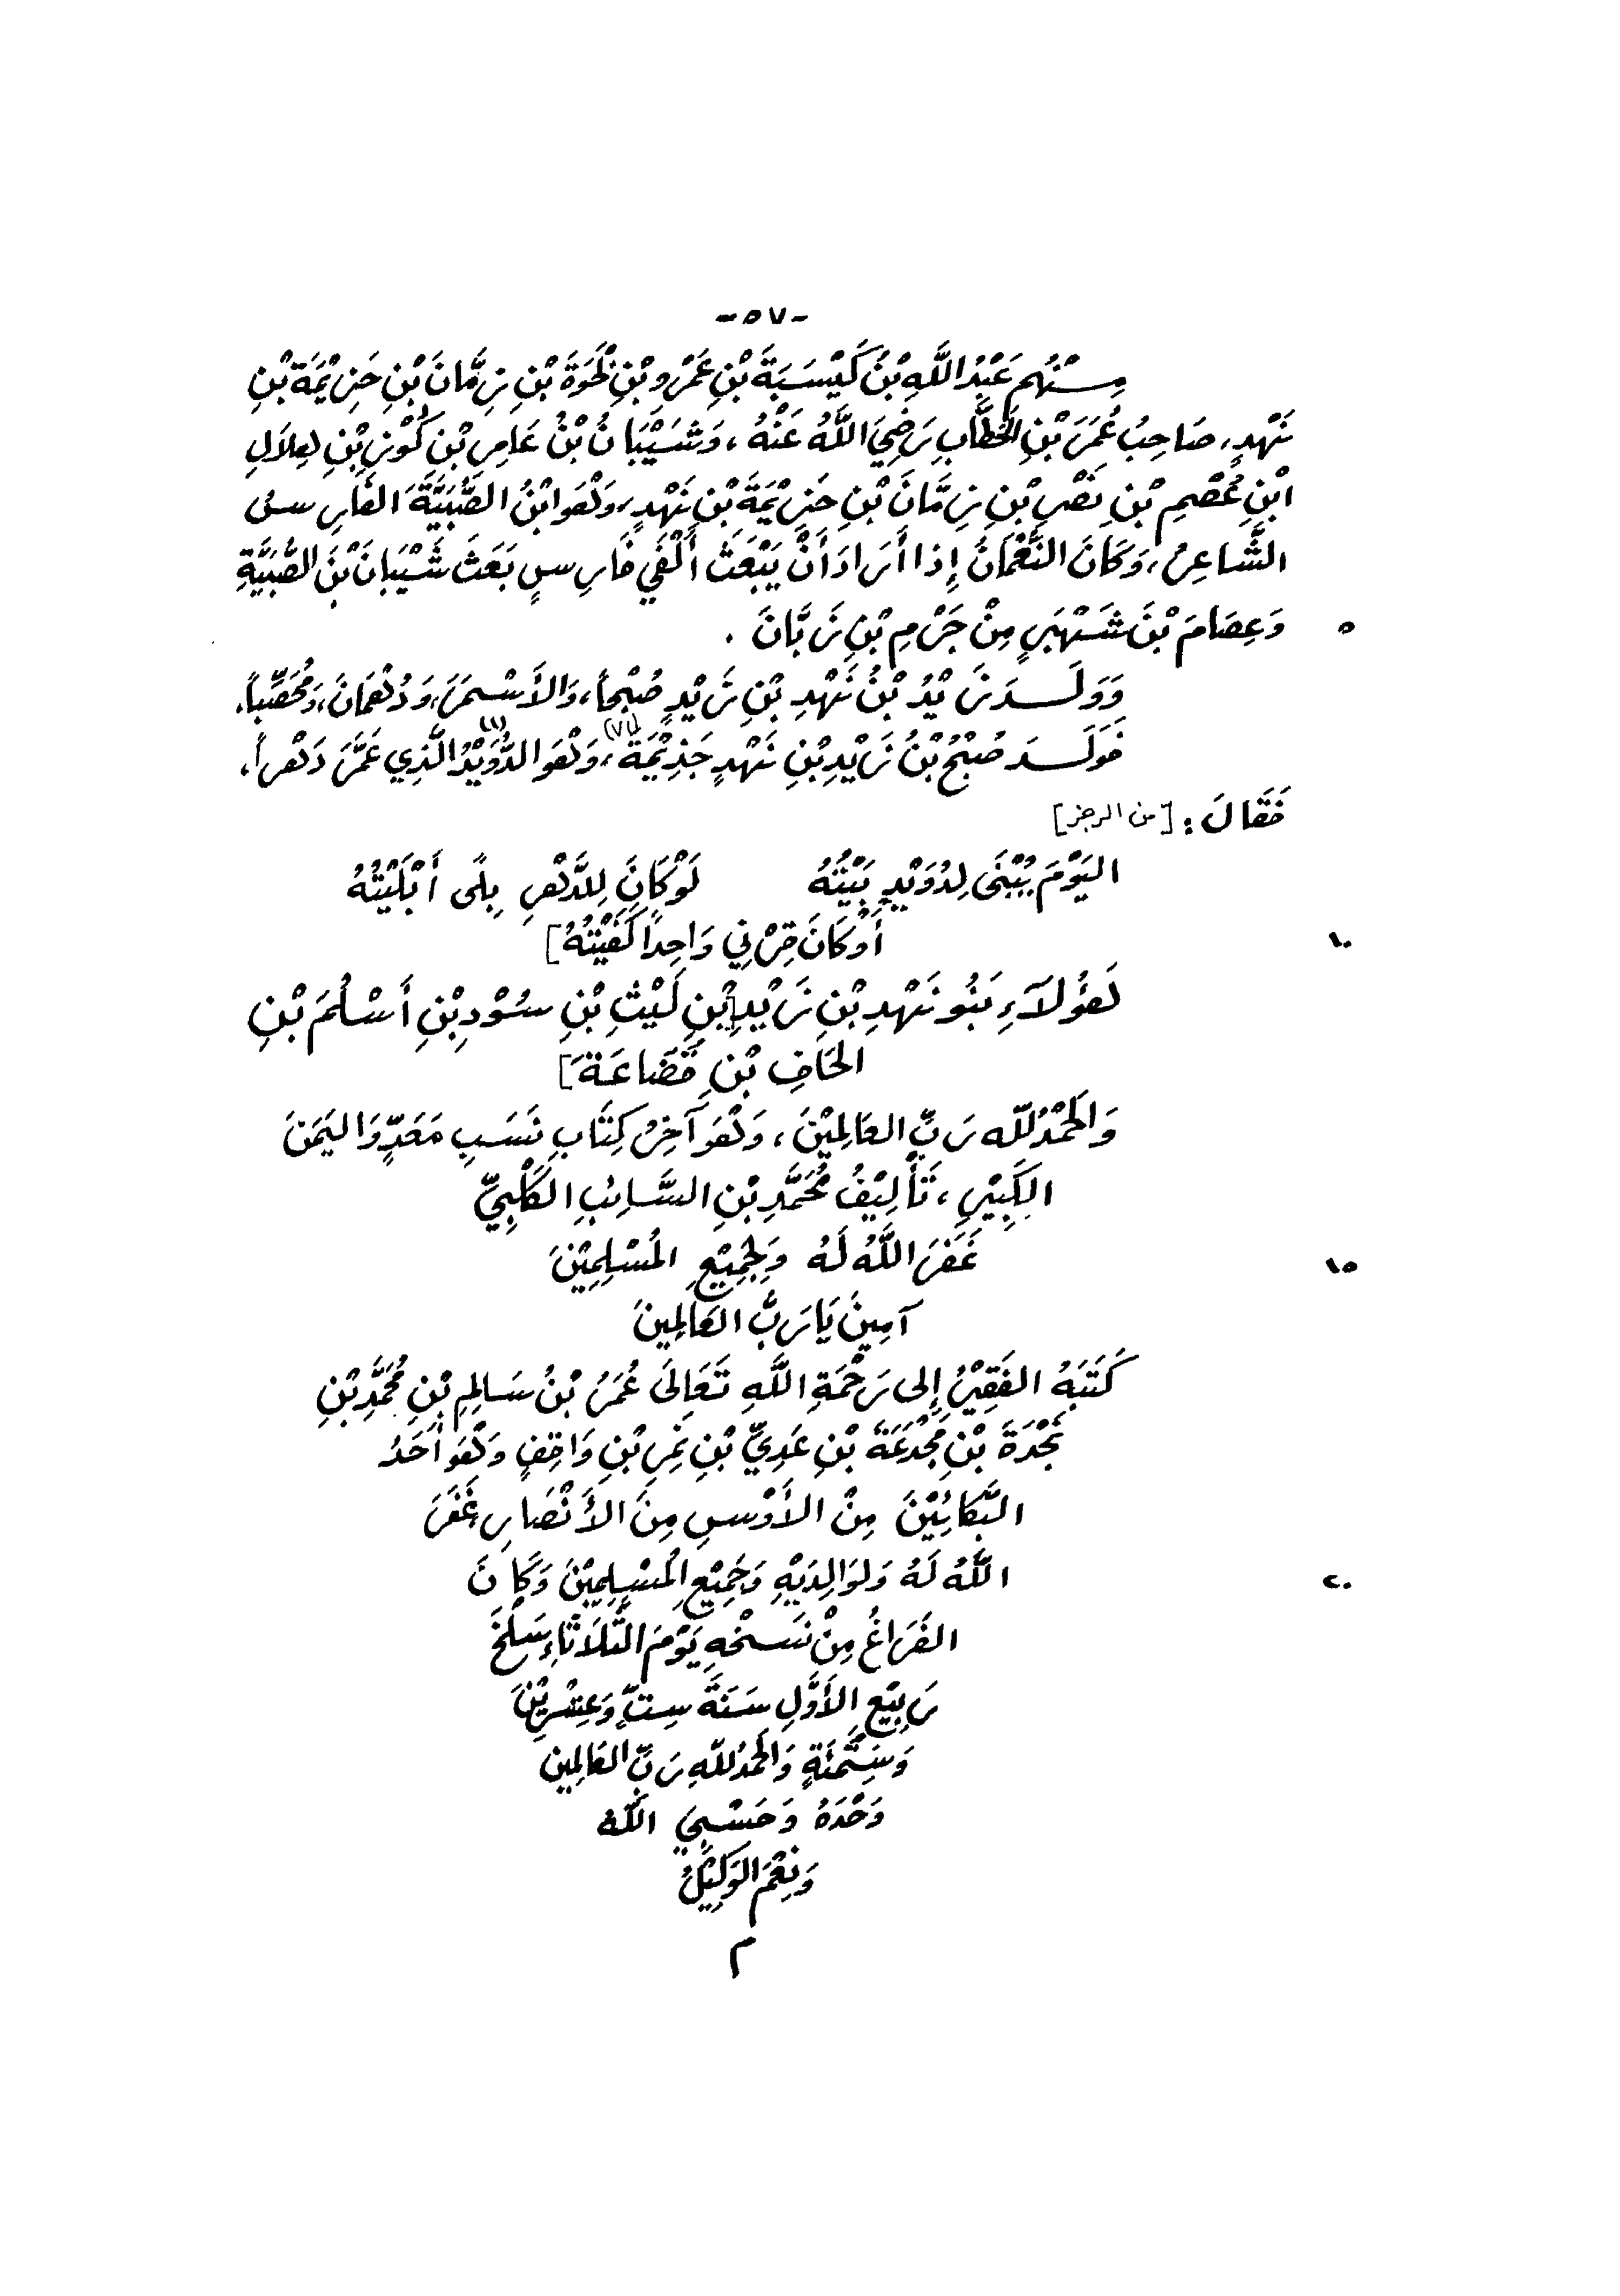 -٥٧-
مِـنْهُم عَبْدُ اللَّهِ بْنُ كَيْسَبَةَ بْنِ عَمْرِو بْنِ لَحْوَةَ بْنِ زِمَّانَ بْنِ حَزِيْمَةَ بْنِ
نَهْدٍ، صَاحِبُ عُمَرَ بْنِ الخَطَّابِ رَضِيَ اللَّهُ عَنْهُ، وَشَيْبَانُ بْنُ عَامِرِ بْنِ كُوْزِ بْنِ هِلَالِ
ابْنِ عُصْمِ بْنِ نَصْرِ بْنِ زِمَّانَ بْنِ حَزِيْمَةَ بْنِ نَهْدٍ، وَهُوَ ابْنُ الضُّبَيَّةَ الفَارِسُ
الشَّاعِرُ، وَكَانَ النُّعْمَانُ إِذا أَرَادَ أَنْ يَبْعَثَ أَلْفَي فَارِسٍ بَعَثَ شَيْبَانَ بْنَ الضُّبَيَّةِ
وَعِصَامَ بْنَ شَهْبَرٍ مِنْ جَرْمِ بْنِ رَبَّانَ . ٥
وَوَلَـدَ زَيْدُ بْنُ نَهْدِ بْنِ زَيْدٍ صُبْحاً، وَالأَسْمَرَ، وَدُهْمَانَ، وَمُحَصِّباً.
فَوَلَـدَ صُبْحُ بْنُ زَيْدِ بْنِ نَهْدٍ جَذِيْمَةَ (٧١)، وَهُوَ الدُّوَيْدُ (١) الَّذِي عَمَّرَ دَهْراً،
فَقَالَ : [من الرجز]
اليَوْمَ يُبْنَى لِدُوَيْدٍ بَيْتُهُ لَوْ كَانَ لِلدَّهْرِ بِلًى أَبْلَيْتُهُ
أَوْ كَانَ قِرْنِي وَاحِداً كَفَيْتُهُ] ١٠
هَؤُلَآءِ بَنُو نَهْدِ بْنِ زَيْدِ [بْنِ لَيْثِ بْنِ سُوْدِ بْنِ أَسْلُمَ بْنِ
الحَافِ بْنِ قُضَاعَةَ]
وَالحَمْدُ للّه رَبِّ العَالِمِيْنَ، وَهُوَ آخِرُ كِتَابِ نَسَبِ مَعَدٍّ وَاليَمَنَ
الكَبِيْرِ، تَأْلِيْفُ مُحَمَّدِ بْنِ السَّائِبِ الكَلْبِيِّ
غَفَرَ اللَّهُ لَهُ وَلِجَمِيْعِ المُسْلِمِيْنَ ١٥
آمِينَ يَا رَبَّ العَالِمِينَ
كَتَبَهُ الفَقِيْرُ إِلى رَحْمَةِ اللَّهِ تَعَالَى عُمَرُ بْنُ سَالِمِ بْنِ مُحَمَّدِ بْنِ
نَجْدَةَ بْنِ مَجْدَعَةَ بْنِ عَدِيِّ بْنِ نَمِرِ بْنِ وَاقِفٍ وَهُوَ أَحَدُ
البَكَائِيْنَ مِنْ الأَوْسِ مِنَ الأَنْصَارِ، غَفَرَ
اللَّهُ لَهُ وَلِوَالِدَيْهِ وَجَمِيْعِ المُسْلِمِيْنَ وَكَانَ ٢٠
الفَرَاغُ مِنْ نَسْخِهِ يَوْمَ الثَّلَاثَاءِ سَلْخَ
رَبِيْعِ الأَوَّلِ سَنَةَ سِتٍّ وَعِشْرِيْنَ
وَسِتَّمِئَةٍ وَالحَمْدُ للّهِ رَبِّ العَالِمِين
وَحْدَهُ وَحَسْبِيَ اللّهُ
وَنِعْمَ الوَكِيْلُ
م